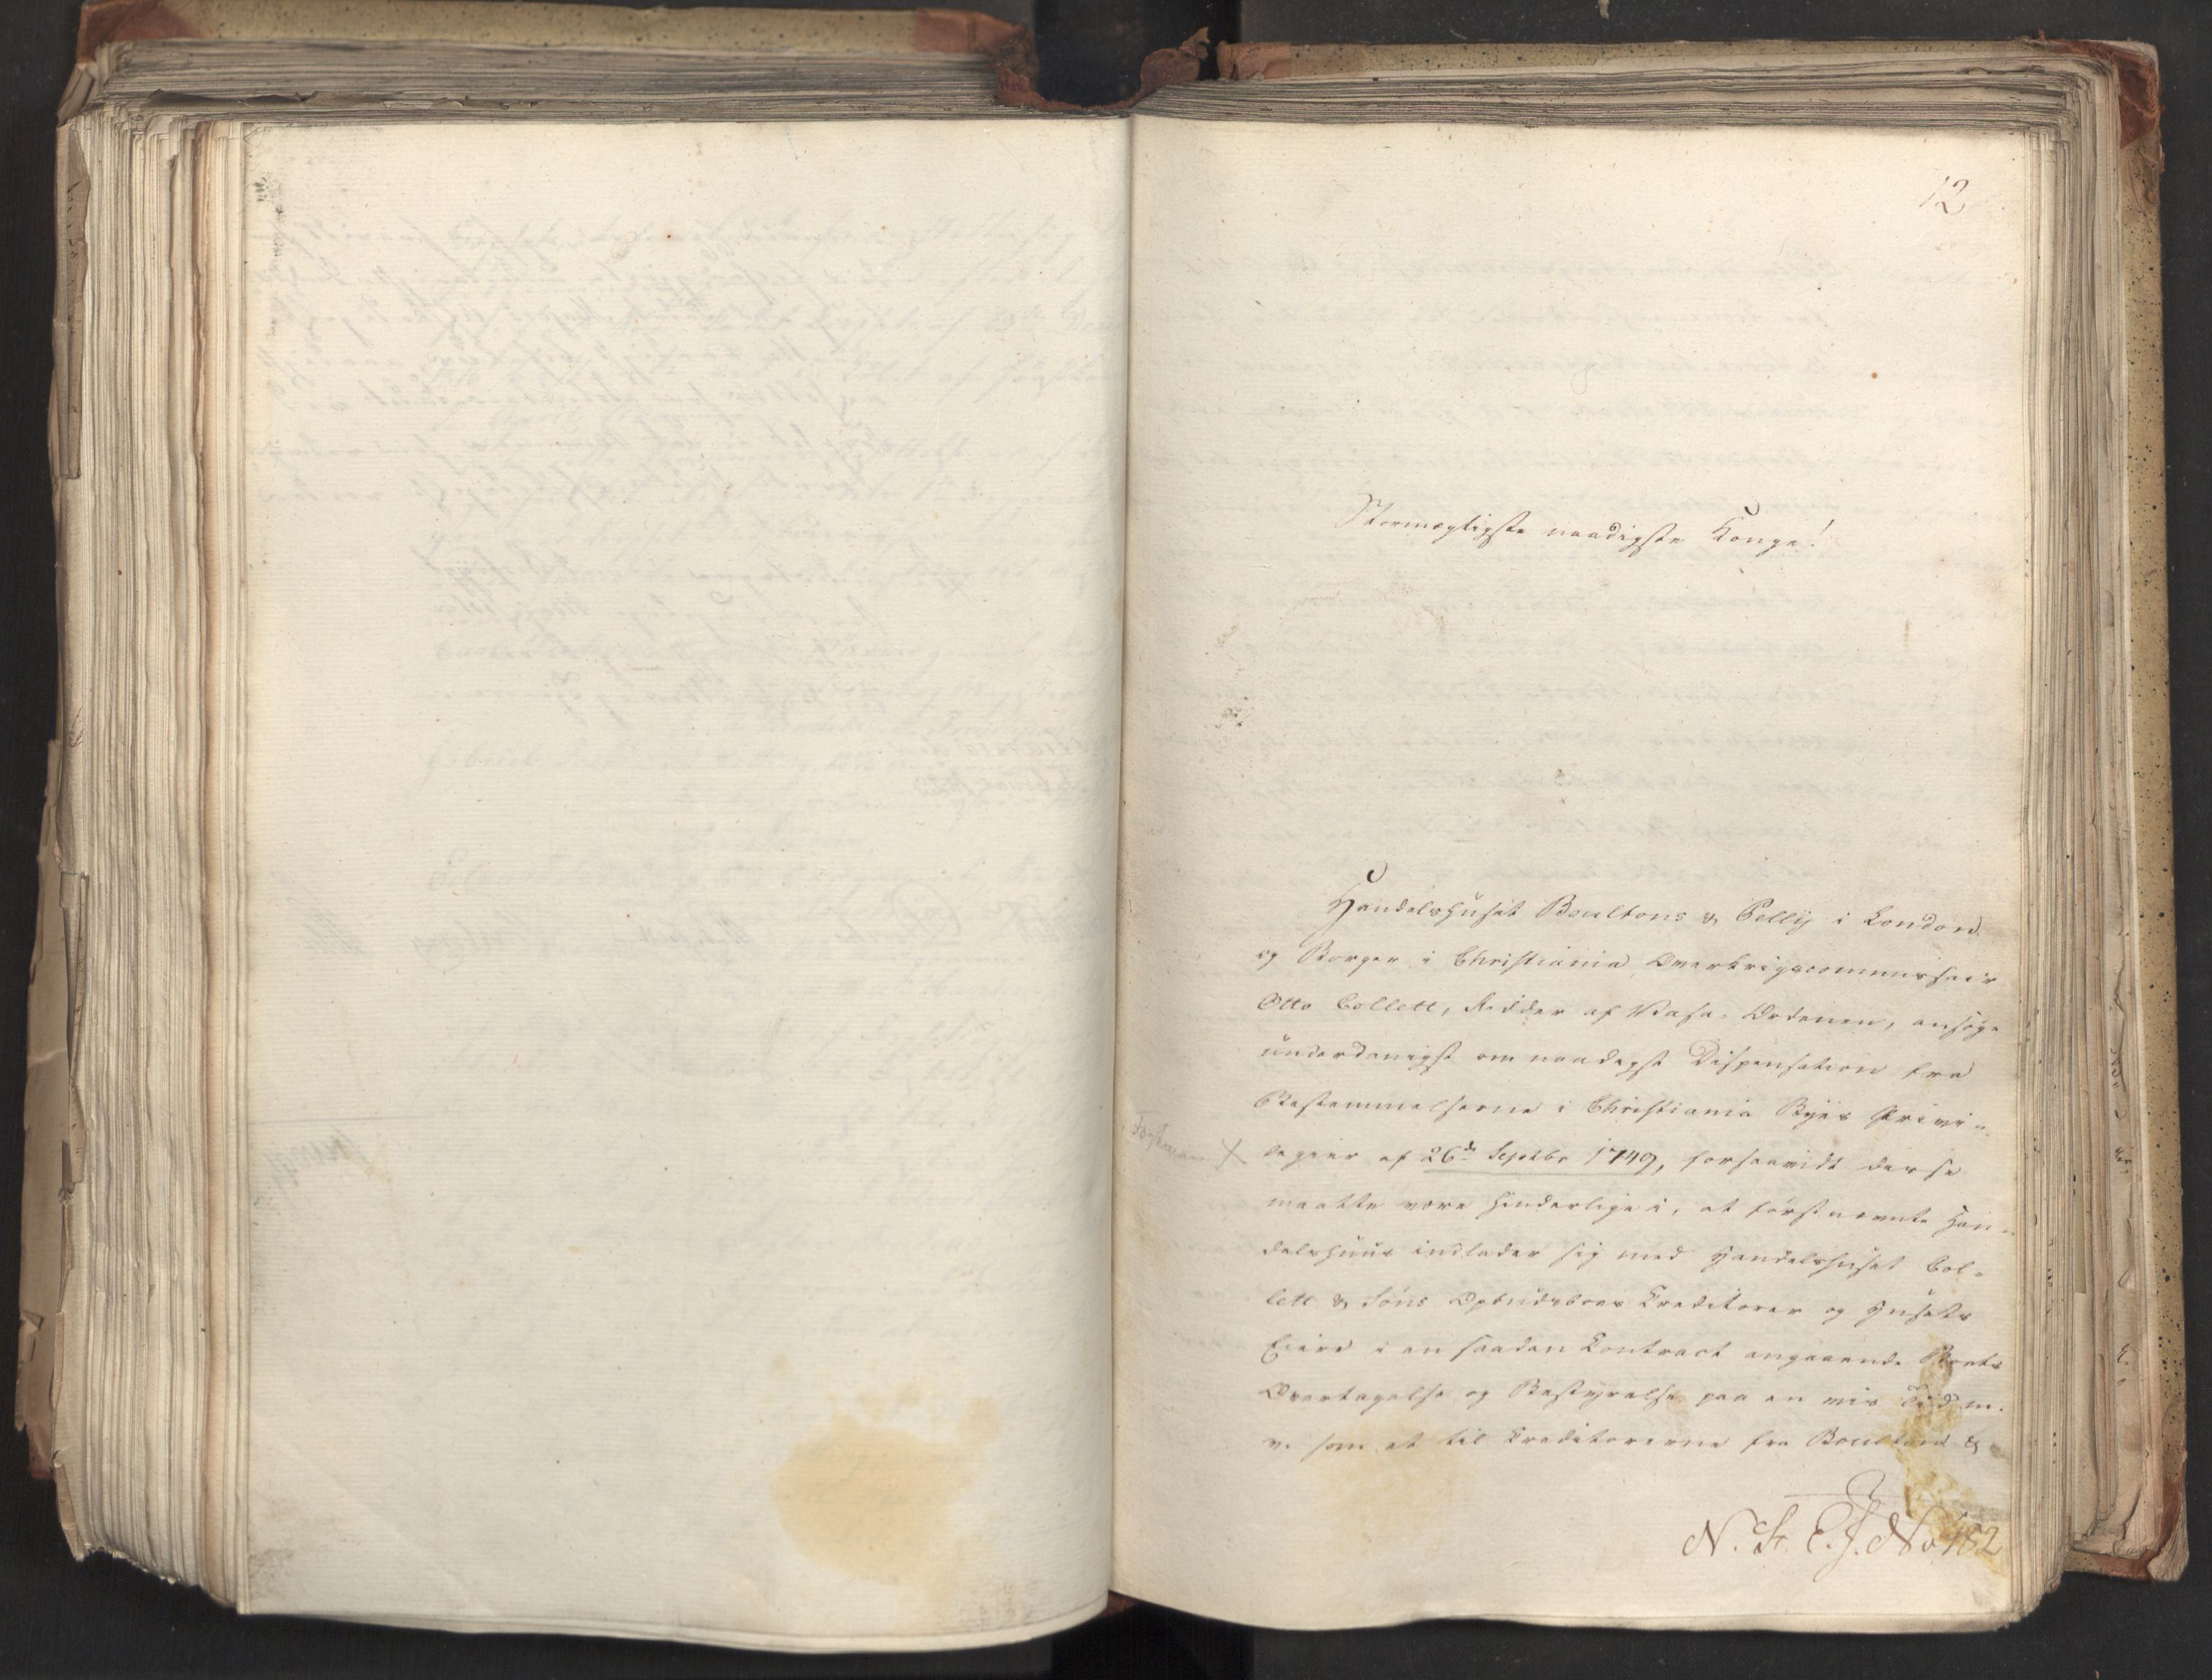 12
Stormægtigste naadigste Konge!
Handelshuset Boultons & Pelly i London
og Borger i Christiania Overkrigscommissair
Otto Collett, Ridder af Vasa-Ordenen, ansøge
underdanigst om naadigst Dispensation fra
Bestemmelserne i Christiania Byes Privi-
X legier af 26de Septbr 1749, forsaavidt disse
maatte være hinderlige i, at førstnævnte Han-
delshuus indlader sig med Handelshuset Col-
lett & Søns Opbudsboes Creditorer og Husets
Eiere i en saadan Contract angaaende Boets
Overtagelse og Bestyrelse paa en vis Tid m.
v. som at til Creditorerne fra Boultons &
N. St. E. J. No 182